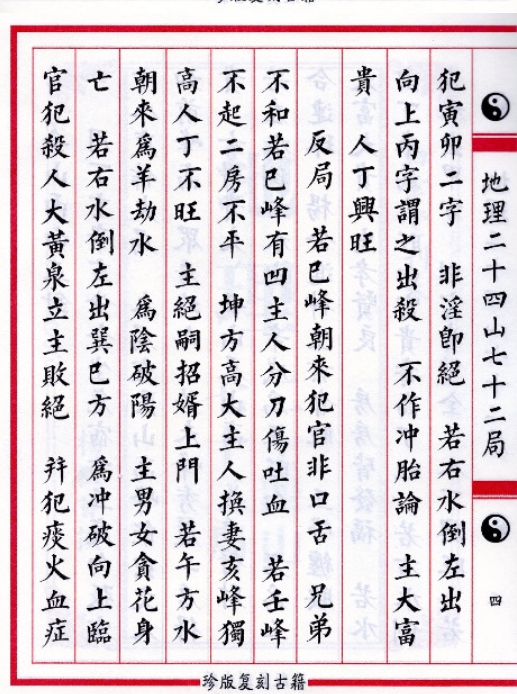 地理二十四山七十二局
四
犯寅卯二字 非淫卽絕 若右水倒左出
向上丙字謂之出殺 不作冲胎論 主大富
貴 人丁興旺
反局 若巳峰朝來犯官非口舌 兄弟
不和若巳峰有凹主人分刀傷吐血 若壬峰
不起二房不平 坤方高大主人損妻亥峰獨
高人丁不旺 主絕嗣招婿上門 若午方水
朝來爲羊劫水 爲陰破陽 主男女貪花身
亡 若右水倒左出巽巳方 爲冲破向上臨
官犯殺人大黃泉立主敗絕 并犯痰火血症
珍版复刻古籍